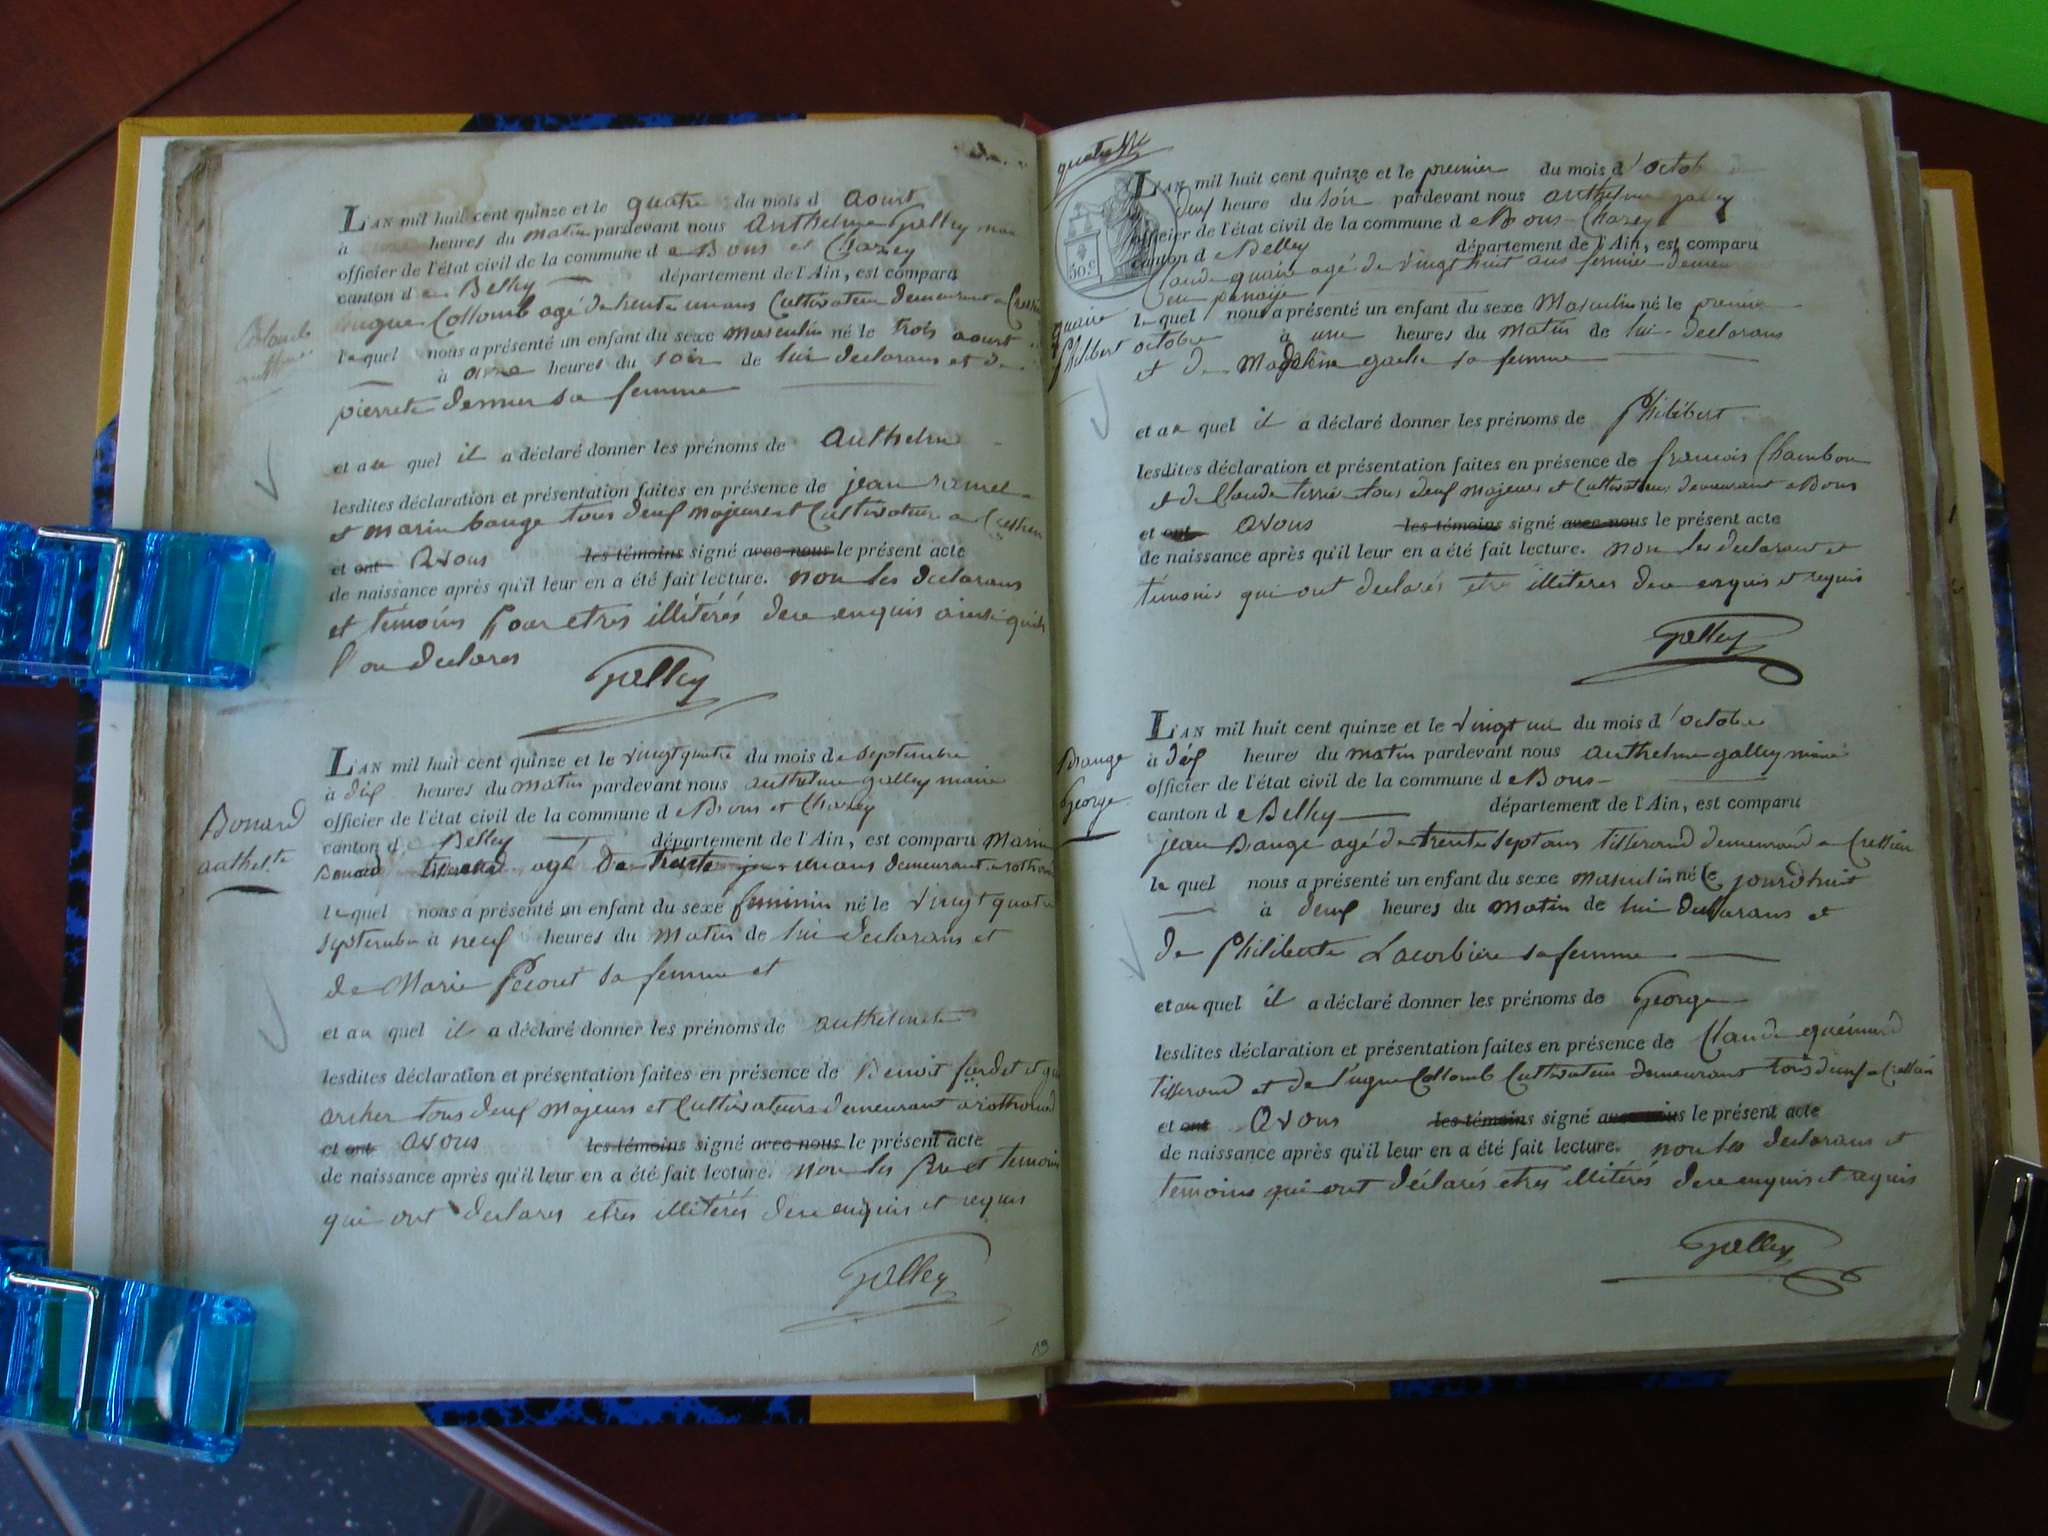 L'AN mil huit cent quinze et le quatre du mois d aoust
à heures du matin pardevant nous Anthelme Galley
officier de l'état civil de la commune d e Bons et Chazey
canton d e Belley département de l'Ain, est comparu
Collomb agé de trente un ans Cultivateur demeurant a
le quel nous a présenté un enfant du sexe masculin né le trois aoust
à heures du soir de lui declarans et de
pierrete sa femme
et au quel il a déclaré donner les prénoms de anthelme
lesdites déclaration et présentation faites en présence de jean
et marin bauge tous deux majeurs et Cultivateur a
et ont avons les témoins signé avec nous le présent acte
de naissance après qu'il leur en a été fait lecture. non les declarans
et témoins pour etres illitérés de ce enquis ainsi quils
l'on declares
Galley
Bonard
anthel.te
L'AN mil huit cent quinze et le vingt quatre du mois de septembre
à dix heures du matin pardevant nous anthelme galley maire
officier de l'état civil de la commune d e Bons et Chazey
canton d e Belley département de l'Ain, est comparu Marin
Bonard tisserand agé de trente ans demeurant a
le quel nous a présenté un enfant du sexe feminin né le vingt quatre
septembre à neuf heures du matin de lui declarans et
de Marie Pecout sa femme et
et au quel il a déclaré donner les prénoms de anthelmete
lesdites déclaration et présentation faites en présence de Benoit
archer tous deux majeurs et Cultivateurs demeurant a
et ont avons les témoins signé avec nous le présent acte
de naissance après qu'il leur en a été fait lecture. non les pere et temoins
qui ont declares etres illitérés de ce enquis et requis
Galley
19
50.c
L'AN mil huit cent quinze et le premier du mois d'octob
à deux heure du soir pardevant nous anthelme galley
officier de l'état civil de la commune d e Bons Chazey
canton d e Belley département de l'Ain, est comparu
Claude agé de vingt huit ans fermier
philibert
le quel nous a présenté un enfant du sexe Masculin né le premier
octobre à une heures du matin de lui declarans
et de Madeleine sa femme
et au quel il a déclaré donner les prénoms de Philibert
lesdites déclaration et présentation faites en présence de francois Chambon
et de Claude tous deux majeurs et Cultivateurs demeurant a Bons
et ont avons les témoins signé avec nous le présent acte
de naissance après qu'il leur en a été fait lecture. non les declarans et
temoins qui ont declarés etre illiteres de ce enquis et requis
Galley
Bauge
George
L'AN mil huit cent quinze et le vingt un du mois d'octobre
à dix heures du matin pardevant nous anthelme galley maire
officier de l'état civil de la commune d e Bons
canton d e Belley département de l'Ain, est comparu
jean Bauge agé de trente sept ans tisserand demeurand a Cressieu
le quel nous a présenté un enfant du sexe masculin né le jourdhuit
à deux heures du matin de lui declarans et
de Philiberte Lacorbiere sa femme
et au quel il a déclaré donner les prénoms de George
lesdites déclaration et présentation faites en présence de Claude
tisserand et de Collomb Cultivateur demeurant tous deux a Cressieu
et ont avons les témoins signé avec nous le présent acte
de naissance après qu'il leur en a été fait lecture. non les declarans et
temoins qui ont déclarés etres illitérés de ce enquis et requis
Galley